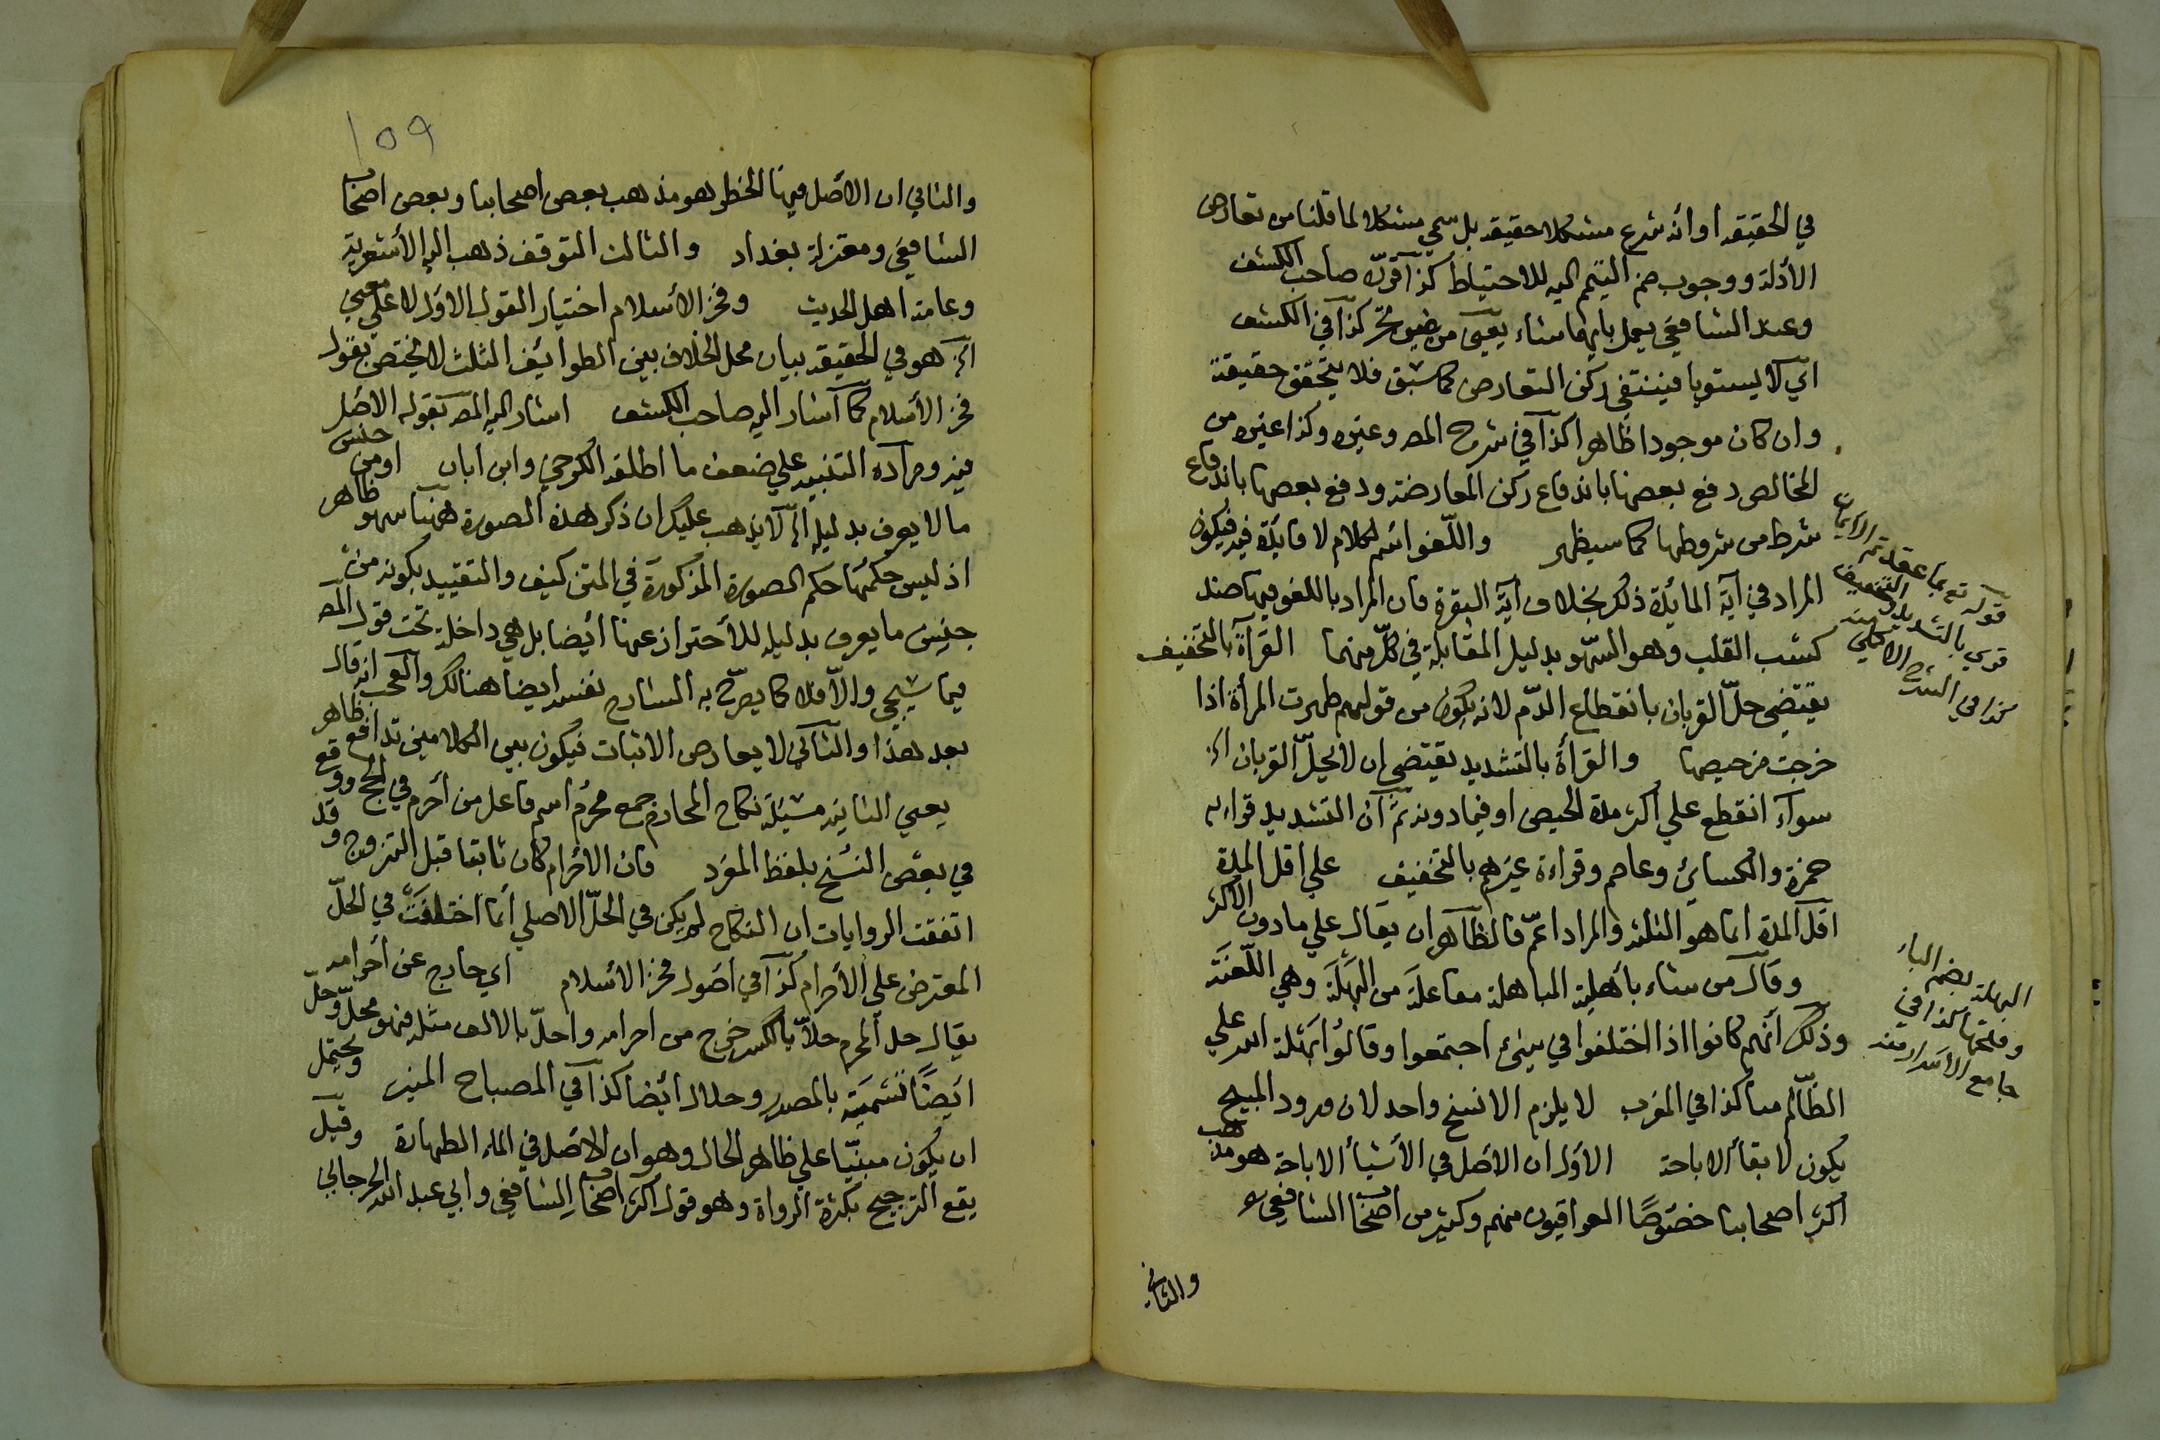 في الحقيقه او انه شرع مشكلا حقيقه بل سمي مشكلا لما قلنا من تعارض
الأدلة ووجوب ضم التيمم اليه للاحتياط كذا قرره صاحب الكشف
وعند الشافعي يعمل بايهما شاء يعني من غير تحر كذا في الكشف
اي لا يستويا فينتفي ركن التعارض كما سبق فلا يتحقق حقيقة
وان كان موجودا ظاهرا كذا في شرح المص وغيره وكذا غيره من
المخالص دفع بعضها باندفاع ركن المعارضة ودفع بعضها باندفاع
شرط من شروطها كما سيظهر واللغو اسم لكلام لا فائدة فيه فيكون
المراد في آية المائدة ذلك بخلاف آية البقرة فان المراد باللغو فيها ضد
كسب القلب وهو السهو بدليل المقابلة في كل منهما القرأة بالتخفيف
يقتضي حل القربان بانقطاع الدم لانه يكون من قولهم طهرت المرأة اذا
خرجت من حيضها والقرأة بالتشديد يقتضي ان لا يحل القربان اه
سواء انقطع علي اكثر مدة الحيض او فيما دونه ثم ان التشديد قراءة
حمزة والكسائي وعاصم وقراءة غيرهم بالتخفيف علي اقل المدة
اقل المدة انما هو الثلثة والمراد اعم فالظاهر ان يقال علي ما دون الاكثر
وقال من شاء باهلته المباهلة مفاعلة من البهلة وهي اللعنة
وذلك أنهم كانوا اذا اختلفوا في شيئ اجتمعوا وقالوا بهلة الله علي
الظالم منا كذا في المغرب لا يلزم الا نسخ واحد لان ورود المبيح
يكون لابقأ الاباحة الاول ان الاصل في الأشيأ الاباحة هو مذهب
اكثر اصحابنا خصوصًا العراقيون منهم وكثير من اصحاب الشافعي
والثاني
قوله تع بما عقدتم الايمان
قري بالتشديد والتخفيف
كذا في الشرح الاكملي منه
البهلة بضم الباء
وفتحها كذا في
جامع الأسرار منه
١٥٩
والثاني ان الاصل فيها الحظر هو مذهب بعض اصحابنا وبعض اصحاب
الشافعي ومعتزلة بغداد والثالث التوقف ذهب اليه الأشعرية
وعامة اهل الحديث وفخر الاسلام اختيار القول الاول لا علي معني
اه هو في الحقيقه بيان محل الخلاف بين الطوائف الثلث لا يختص بقول
فخر الأسلام كما اشار اليه صاحب الكشف اشار اليه المص بقوله الاصل
فيه ومراده التنبيه علي ضعف ما اطلقه الكرخي وابن ابان او من جنس
ما لا يعرف بدليله اه لا يذهب عليك ان ذكر هذه الصورة ههنا سهو ظاهر
اذ ليس حكمها حكم الصورة المذكورة في المتن كيف والتقييد بكونه من
جنس ما يعرف بدليله للأحتراز عنها ايضا بل هي داخلة تحت قول المص
فيما سيجي والا فلا كما يصرح به الشارح نفسه ايضا هنالك والعجب انه قال
بعد هذا والثاني لا يعارض الاثبات فيكون بين الكلامين تدافع ظاهر
يعني الثانية مسئلة نكاح المحارم جمع محرم اسم فاعل من أحرم في الحج ووقع
في بعض النسخ بلفظ المفرد فان الأحرام كان ثابتا قبل التزوج وقد
اتفقت الروايات ان النكاح لم يكن في الحل الاصلي انما اختلفت في الحل
المعترض علي الأحرام كذا في اصول فخر الأسلام اي خارج عن أحرامه
يقال حل المحرم حلًا بالكسر خرج من احرامه واحل بالالف مثله فهو محل وحل
ايضًا تسمية بالمصدر وحلال أيضا كذا في المصباح المنير ويحتمل
ان يكون مبنيا علي ظاهر الحال وهو ان الاصل في الماء الطهارة وقيل
يقع الترجيح بكثرة الرواة وهو قول اكثر اصحاب الشافعي وابي عبد الله الجرجاني